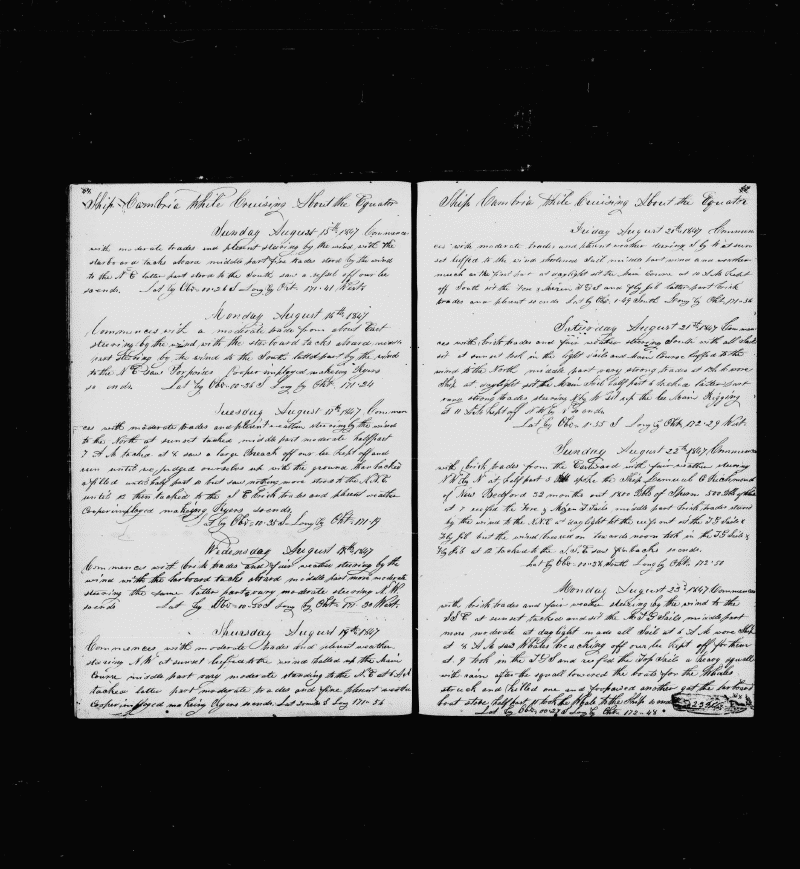 Ship Cambria While Cruising About the Equator
Sunday August 15th 1847 Commences
with moderate trades and plesent stearing by the wind with the
starboard tacks aboard middle part fine trades stood by the wind
to the N E latter part stood to the South saw a vessel off our lee
so ends. Lat by Obs 00-26 S Long by Cht 171-41 West
Monday August 16th 1847
Commences with a moderate trade from about East
stearing by the wind with the starboard tacks aboard middle
part stearing by the wind to the South latter part by the wind
to the N E saw Porpoises Cooper employed making Ryers
so ends Lat by Obs 00-36 S Long by Cht 171-24
Tuesday August 17th 1847 Commen
ces with moderate trades and plesent weather stearing by the wind
to the North at sunset tacked middle part moderate half part
7 A M tacked at 8 saw a large Breach off our lee kept off and
run until we judged ourselves up with the ground then tacked
until but saw nothing more stood the N N E
until 12 then tacked to the S E brisk trades and plesent weather
Cooper imployed making Ryers so ends
Lat by Obs 00-35 S Long by Cht 171-19
Wednesday August 18th 1847
Commences with brisk trades and fair weather stearing by the
wind with the larboard tacks aboard middle part more moderate
stearing the same latter part vary moderate stearing N. W.
so ends Lat by Obs 00-30 S Long by Cht 171-30 West
Thursday August 19th 1847
Commences with moderate trades and plesent weather
stearing N W at sunset luffed to the wind hailed up the Main
Course middle part vary moderate standing to the N E at 6 A M
tacked latter part moderate trades and fine plesent weather
Cooper imployed making Ryers so ends Lat S Long 171-56
Ship Cambria While Cruising About the Equator
Friday August 20th 1847 Commen
ces with moderate trades and plesent weather stearing S by W at sun
set luffed to the wind shortened Sail middle part wind and weather
much as the first part at daylight set the Main Course at 10 A M kept
off South set the Fore & Main T G S and Fly jib latter part brisk
trades and plesent so ends Lat by Obs 1-49 South Long by Cht 171-56
Saturday August 21st 1847 Commen
ces with brisk trades and fair weather stearing South with all Sail
set at sunset took in the light sails and Main Course luffed to the
wind to the North middle part vary strong trades at 12 h wore
Ship at daylight set the Main Sail half part 6 tacked latter part
vary strong trades to set up the lee Main Rigging
at 11 kept off N W so ends
Lat by Obs 1-55 S Long by Cht 172-29 West
Sunday August 22nd 1847 Commences
with brisk trades from the Eastward with fair weather stearing
N W by N at half part 5 PM spoke the Ship Lancaster Richmond
of New Bedford 32 months out 1800 Bbls of Sperm 500 Bbls
at 7 reefed the Fore & Mizen T Sails middle part brisk trades stood
by the wind to the N N E at daylight let the reefs out set the T G Sails &
Fly jib but the wind towards noon took in the T G Sails &
Fly jib at 12 tacked to the S. S. E saw finbacks so ends
Lat by Obs 00-38 North Long by Cht 172-50
Monday August 23rd 1847 Commences
with brisk trades and fair weather stearing by the wind to the
S S E at sunset tacked and set the M T G Sails middle part
more moderate at daylight made all Sail at 6 A M wore Ship
at 8 A M saw Whales breaching off our lee kept off for them
at 9 took in the T G S and reefed the Top Sails a heavy squall
with rain after the squall lowered the boats for the Whales
struck and killed one and another got the larboard
boat stove half part took the Whale to the Ship so ends
Lat by Obs 00-27 S Long by Cht 172-48